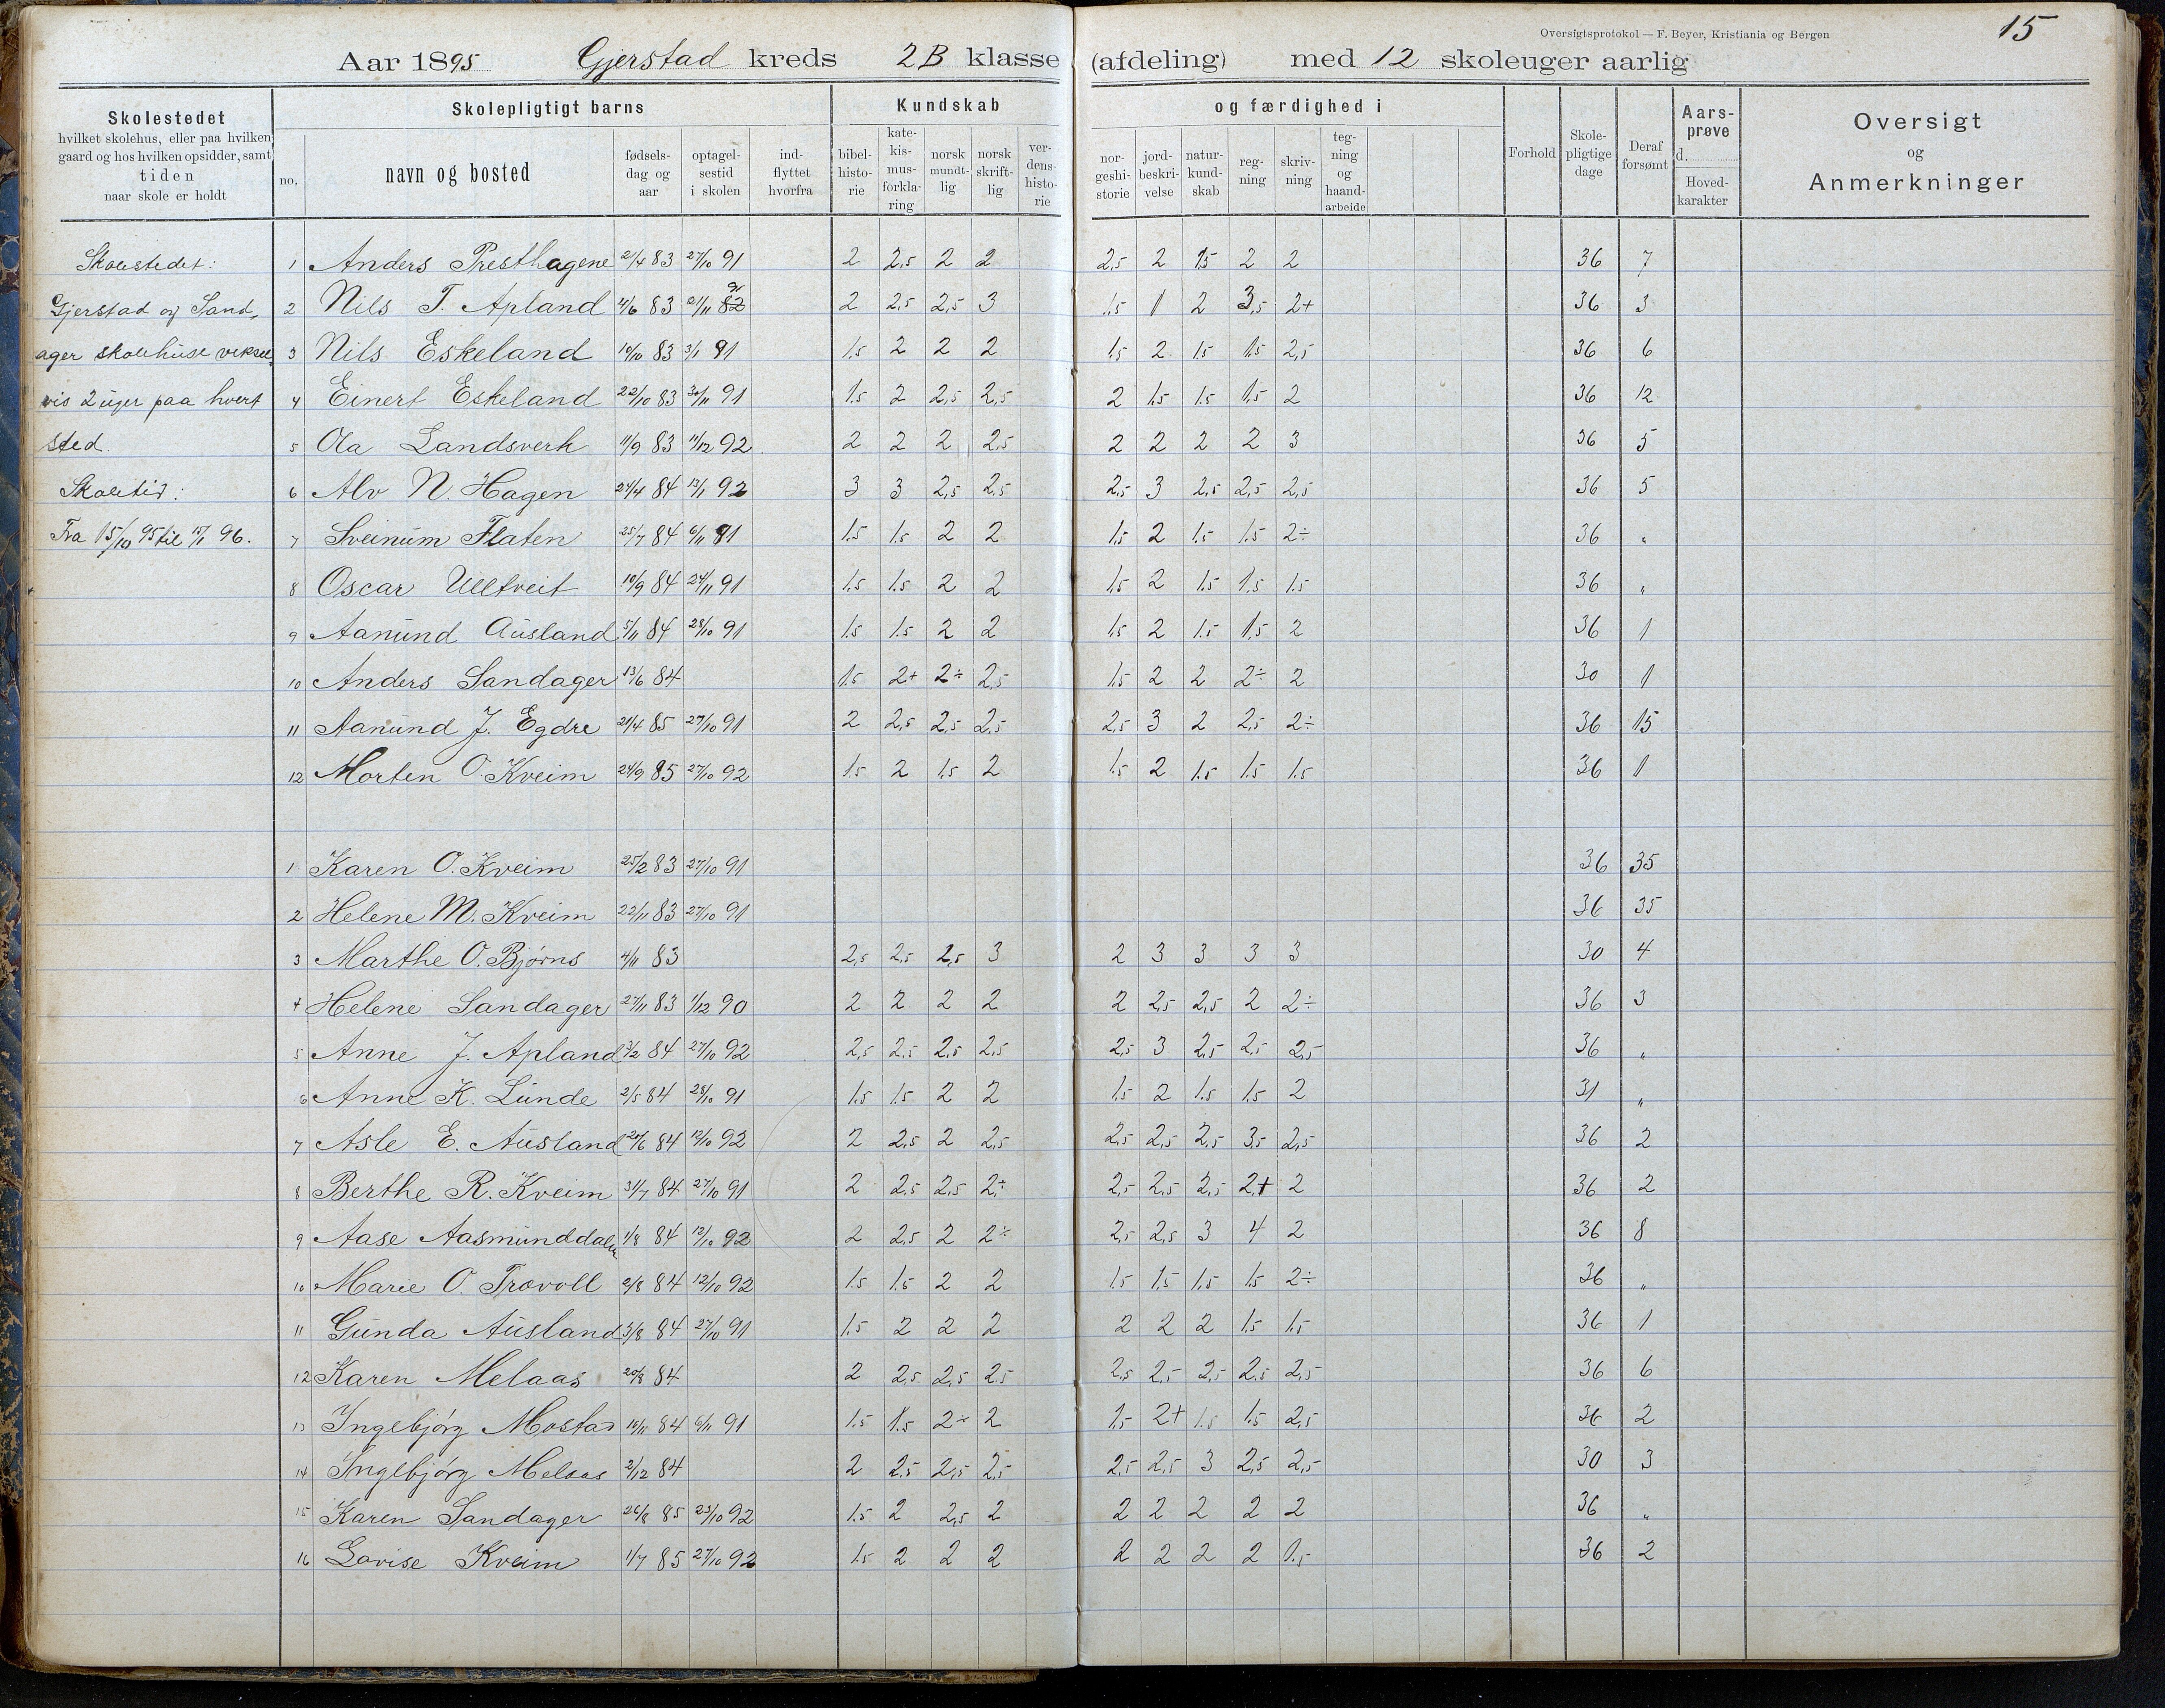 Oversigtsprotokol — F. Beyer, Kristiania og Bergen
15
Aar 1895 Gjerstad kreds 2B klasse (afdeling) med 12 skoleuger aarlig
Skolestedet hvilket skolehus, eller paa hvilken gaard og hos hvilken opsidder, samt tiden naar skole er holdt
Skolepligtigt barns
no. navn og bosted fødsels-dag og aar optagel-sestid i skolen ind-flyttet hvorfra
Kundskab og færdighed i
bibel-histo-rie kate-kis-mus-forkla-ring norsk mundt-lig norsk skrift-lig ver-dens-histo-rie nor-geshi-storie jord-beskri-velse natur-kund-skab reg-ning skriv-ning teg-ning og haand-arbeide
Forhold Skole-pligtige dage Deraf forsømt Aars-prøve d. Hoved-karakter
Oversigt og Anmerkninger
Skolestedet:
Gjerstad og Sand-
ager skolehuse veksel-
vis 2 uger paa hvert
sted.
Skoletid:
Fra 15/10 95 til 15/1 96.
1 Anders Presthagene 2/4 83 27/10 91 2 2,5 2 2 2,5 2 1,5 2 2 36 7
2 Nils T. Apland 4/6 83 21/11 82 91 2 2,5 2,5 3 1,5 1 2 3,5 2+ 36 3
3 Nils Eskeland 10/10 83 3/1 91 1,5 2 2 2 1,5 2 1,5 1,5 2,5 36 6
4 Einert Eskeland 22/10 83 30/11 91 1,5 2 2,5 2,5 2 1,5 1,5 1,5 2 36 12
5 Ola Landsverk 11/9 83 11/12 92 2 2 2 2,5 2 2 2 2 3 36 5
6 Alv N. Hagen 24/4 84 13/1 92 3 3 2,5 2,5 2,5 3 2,5 2,5 2,5 36 5
7 Sveinum Flaten 25/7 84 6/11 91 1,5 1,5 2 2 1,5 2 1,5 1,5 2÷ 36 "
8 Oscar Ulltveit 10/9 84 24/11 91 1,5 1,5 2 2 1,5 2 1,5 1,5 1,5 36 "
9 Aanund Ausland 5/11 84 28/10 91 1,5 1,5 2 2 1,5 2 1,5 1,5 2 36 1
10 Anders Sandager 13/6 84 1,5 2+ 2÷ 2,5 1,5 2 2 2÷ 2 30 1
11 Aanund J. Egdre 21/4 85 27/10 91 2 2,5 2,5 2,5 2,5 3 2 2,5 2÷ 36 15
12 Morten O. Kveim 24/9 85 27/10 92 1,5 2 1,5 2 1,5 2 1,5 1,5 1,5 36 1
1 Karen O. Kveim 25/2 83 27/10 91 36 35
2 Helene M. Kveim 22/11 83 27/10 91 36 35
3 Marthe O. Bjørns 4/11 83 2,5 2,5 2,5 3 2 3 3 3 3 30 4
4 Helene Sandager 27/11 83 1/12 90 2 2 2 2 2 2,5 2,5 2 2÷ 36 3
5 Anne J. Apland 3/2 84 27/10 92 2,5 2,5 2,5 2,5 2,5 3 2,5 2,5 2,5 36 "
6 Anne K. Lunde 2/5 84 28/10 91 1,5 1,5 2 2 1,5 2 1,5 1,5 2 31 "
7 Asle E. Ausland 20/6 84 12/10 92 2 2,5 2 2,5 2,5 2,5 2,5 3,5 2,5 36 2
8 Berthe R. Kveim 31/7 84 27/10 91 2 2,5 2,5 2÷ 2,5 2,5 2,5 2+ 2 36 2
9 Aase Aasmunddalen 1/8 84 12/10 92 2 2,5 2 2÷ 2,5 2,5 3 4 2 36 8
10 Marie O. Trovoll 2/8 84 12/10 92 1,5 1,5 2 2 1,5 1,5 1,5 1,5 2÷ 36 "
11 Gunda Ausland 3/8 84 27/10 91 1,5 2 2 2 2 2 2 1,5 1,5 36 1
12 Karen Melaas 20/8 84 2 2,5 2,5 2,5 2,5 2,5 2,5 2,5 2,5 36 6
13 Ingebjørg Mostad 10/11 84 6/11 91 1,5 1,5 2÷ 2 1,5 2+ 1,5 1,5 2,5 36 2
14 Ingebjørg Melaas 2/12 84 2 2,5 2,5 2,5 2,5 2,5 3 2,5 2,5 30 3
15 Karen Sandager 26/8 85 23/10 92 1,5 2 2,5 2 2 2 2 2 2 36 "
16 Lovise Kveim 1/7 85 27/10 92 1,5 2 2 2 2 2 2 2 1,5 36 2